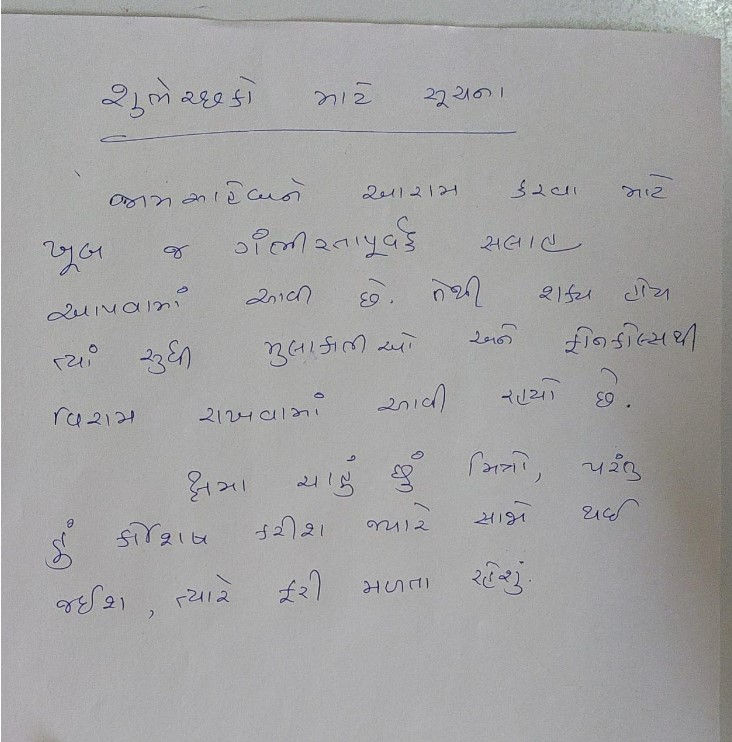 શુભેચ્છકો માટે સૂચના
જામસાહેબને આરામ કરવા માટે
ખૂબ જ ગંભીરતાપૂર્વક સલાહ
આપવામાં આવી છે. તેથી શક્ય હોય
ત્યાં સુધી મુલાકાતીઓ અને ફોનકોલ્સથી
વિરામ રાખવામાં આવી રહ્યો છે.
ક્ષમા ચાહું છું મિત્રો, પરંતુ
હું કોશિષ કરીશ જ્યારે સાજો થઈ
જઈશ, ત્યારે ફરી મળતા રહેશું.